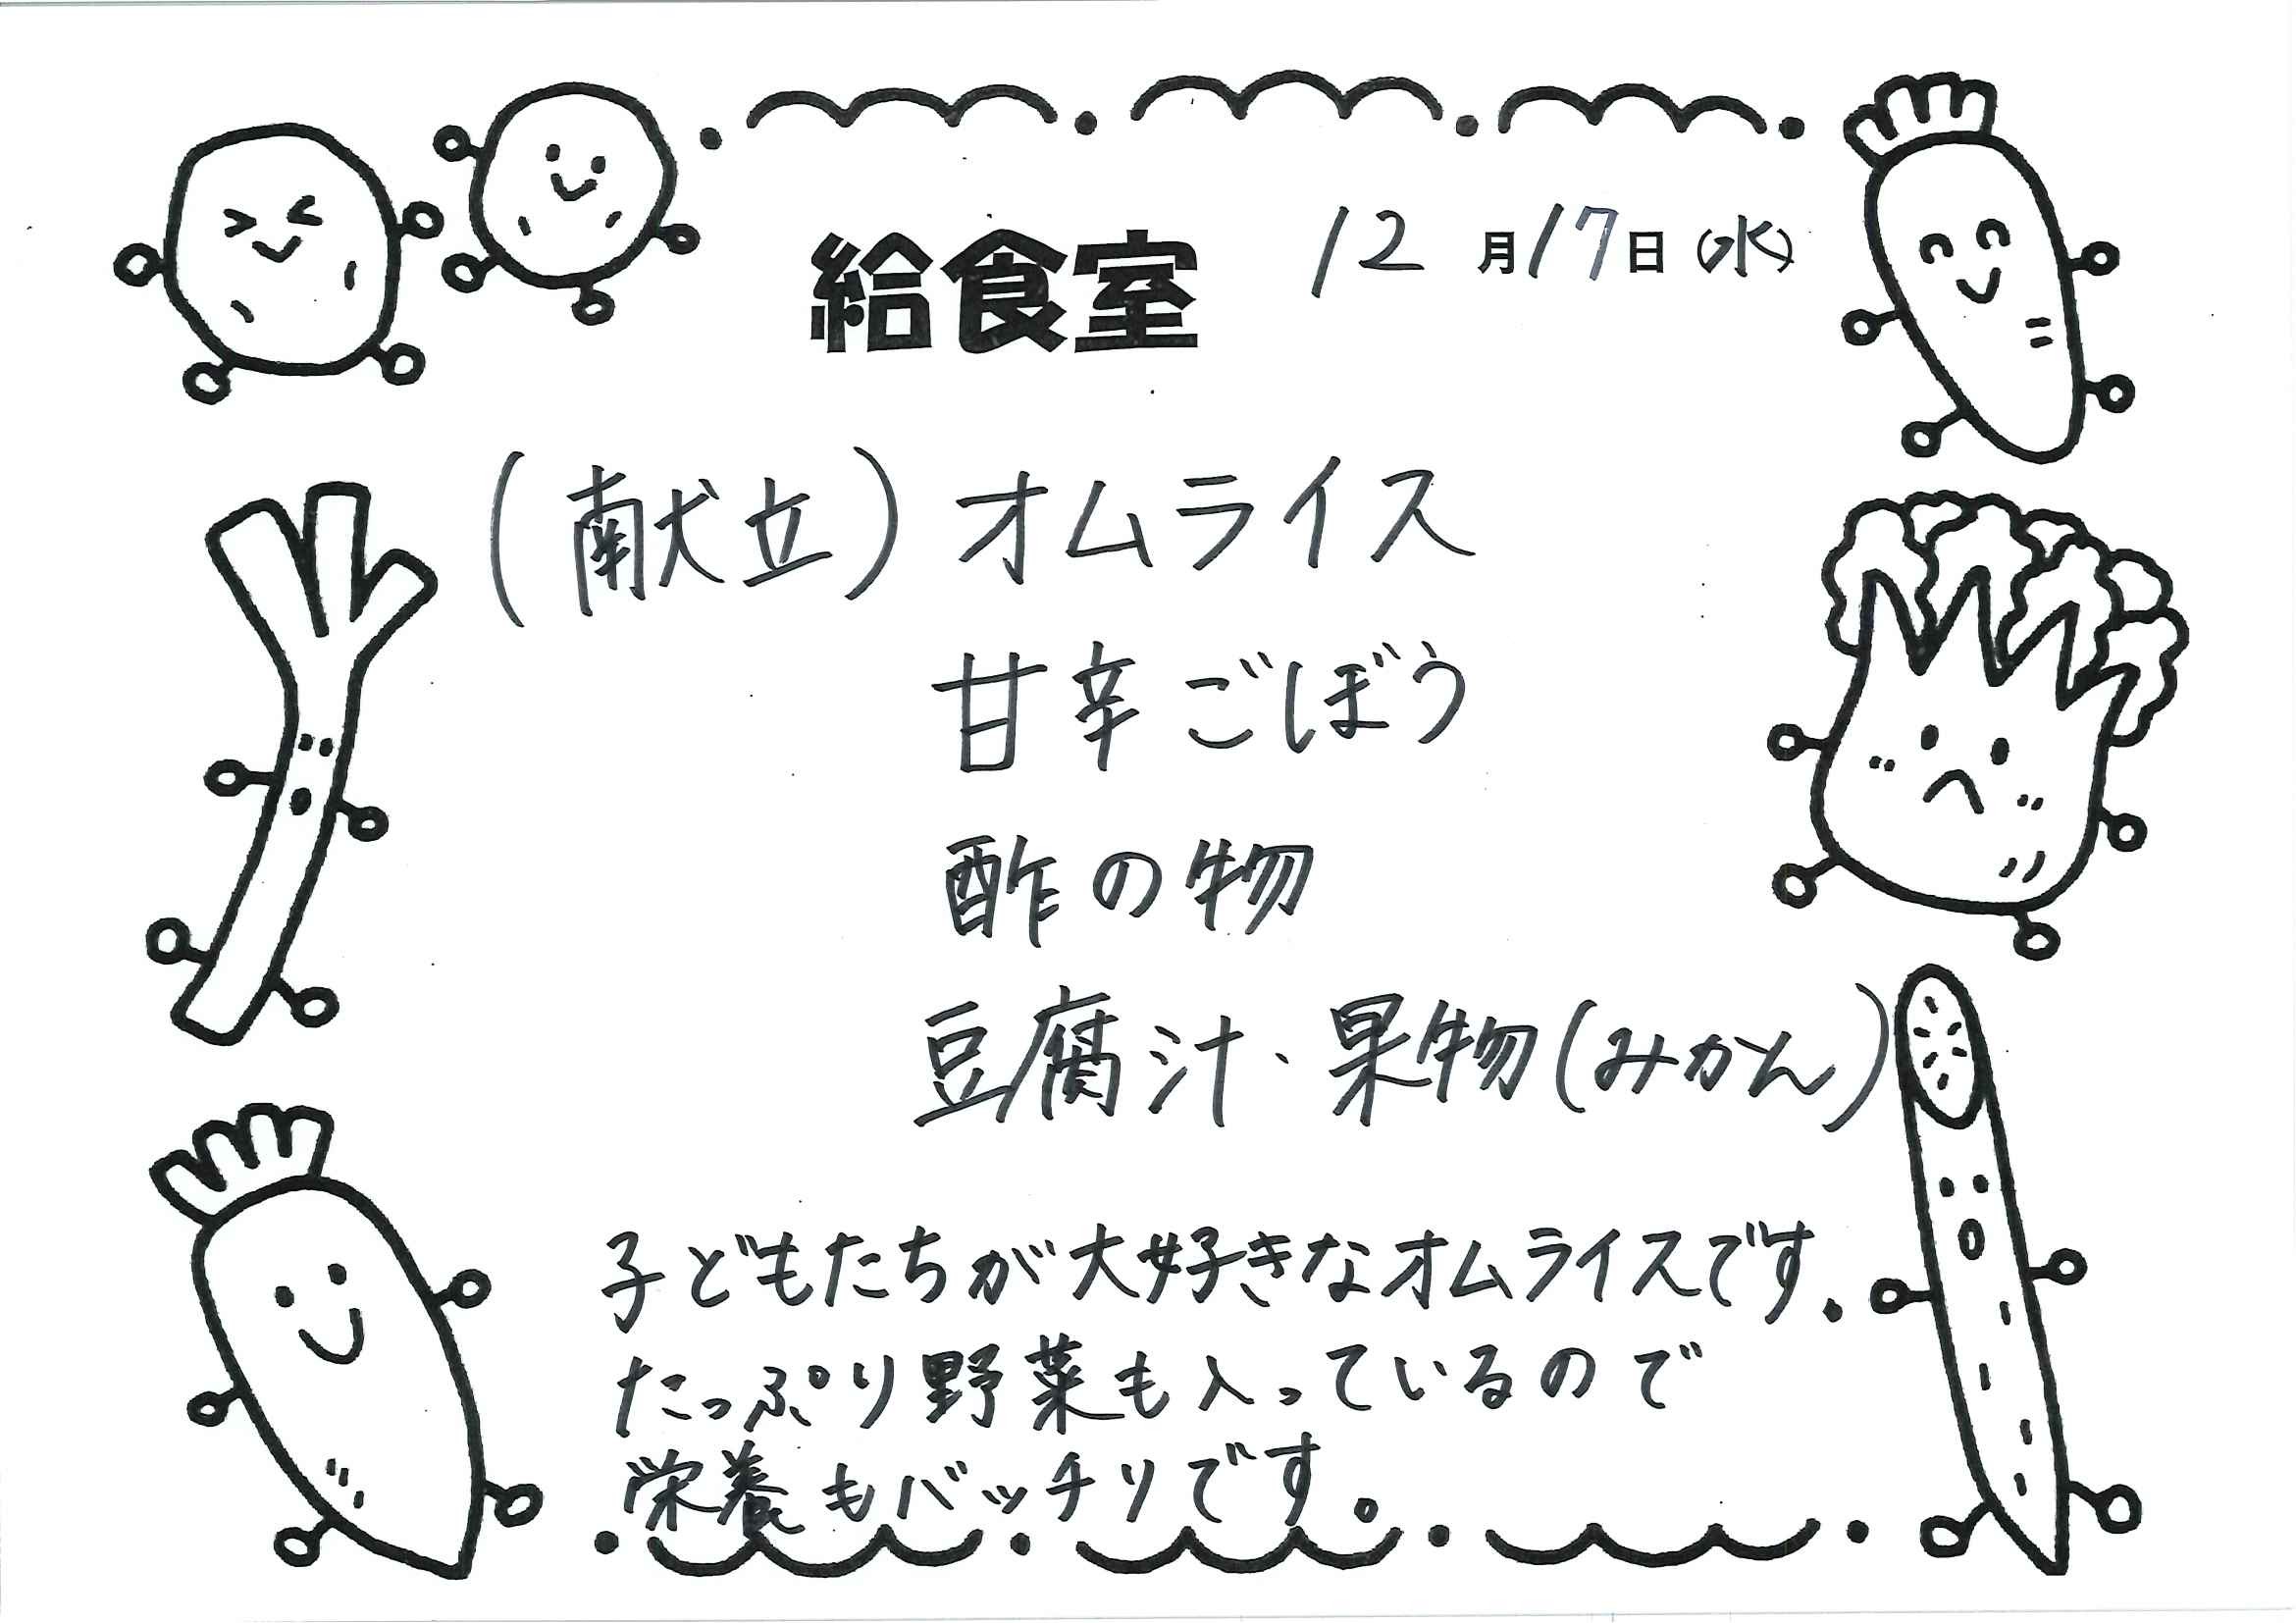 給食室 12月17日(水)
(献立) オムライス
甘辛ごぼう
酢の物
豆腐汁・果物(みかん)
子どもたちが大好きなオムライスです。
たっぷり野菜も入っているので
栄養もバッチリです。